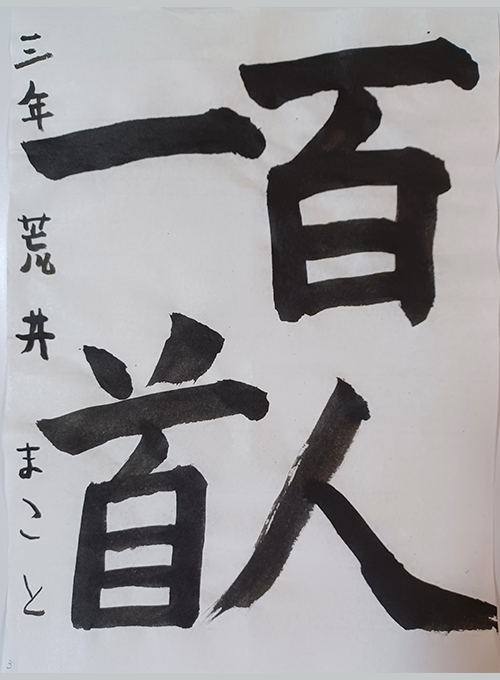 百人
一首
三年 荒井 まこと
3